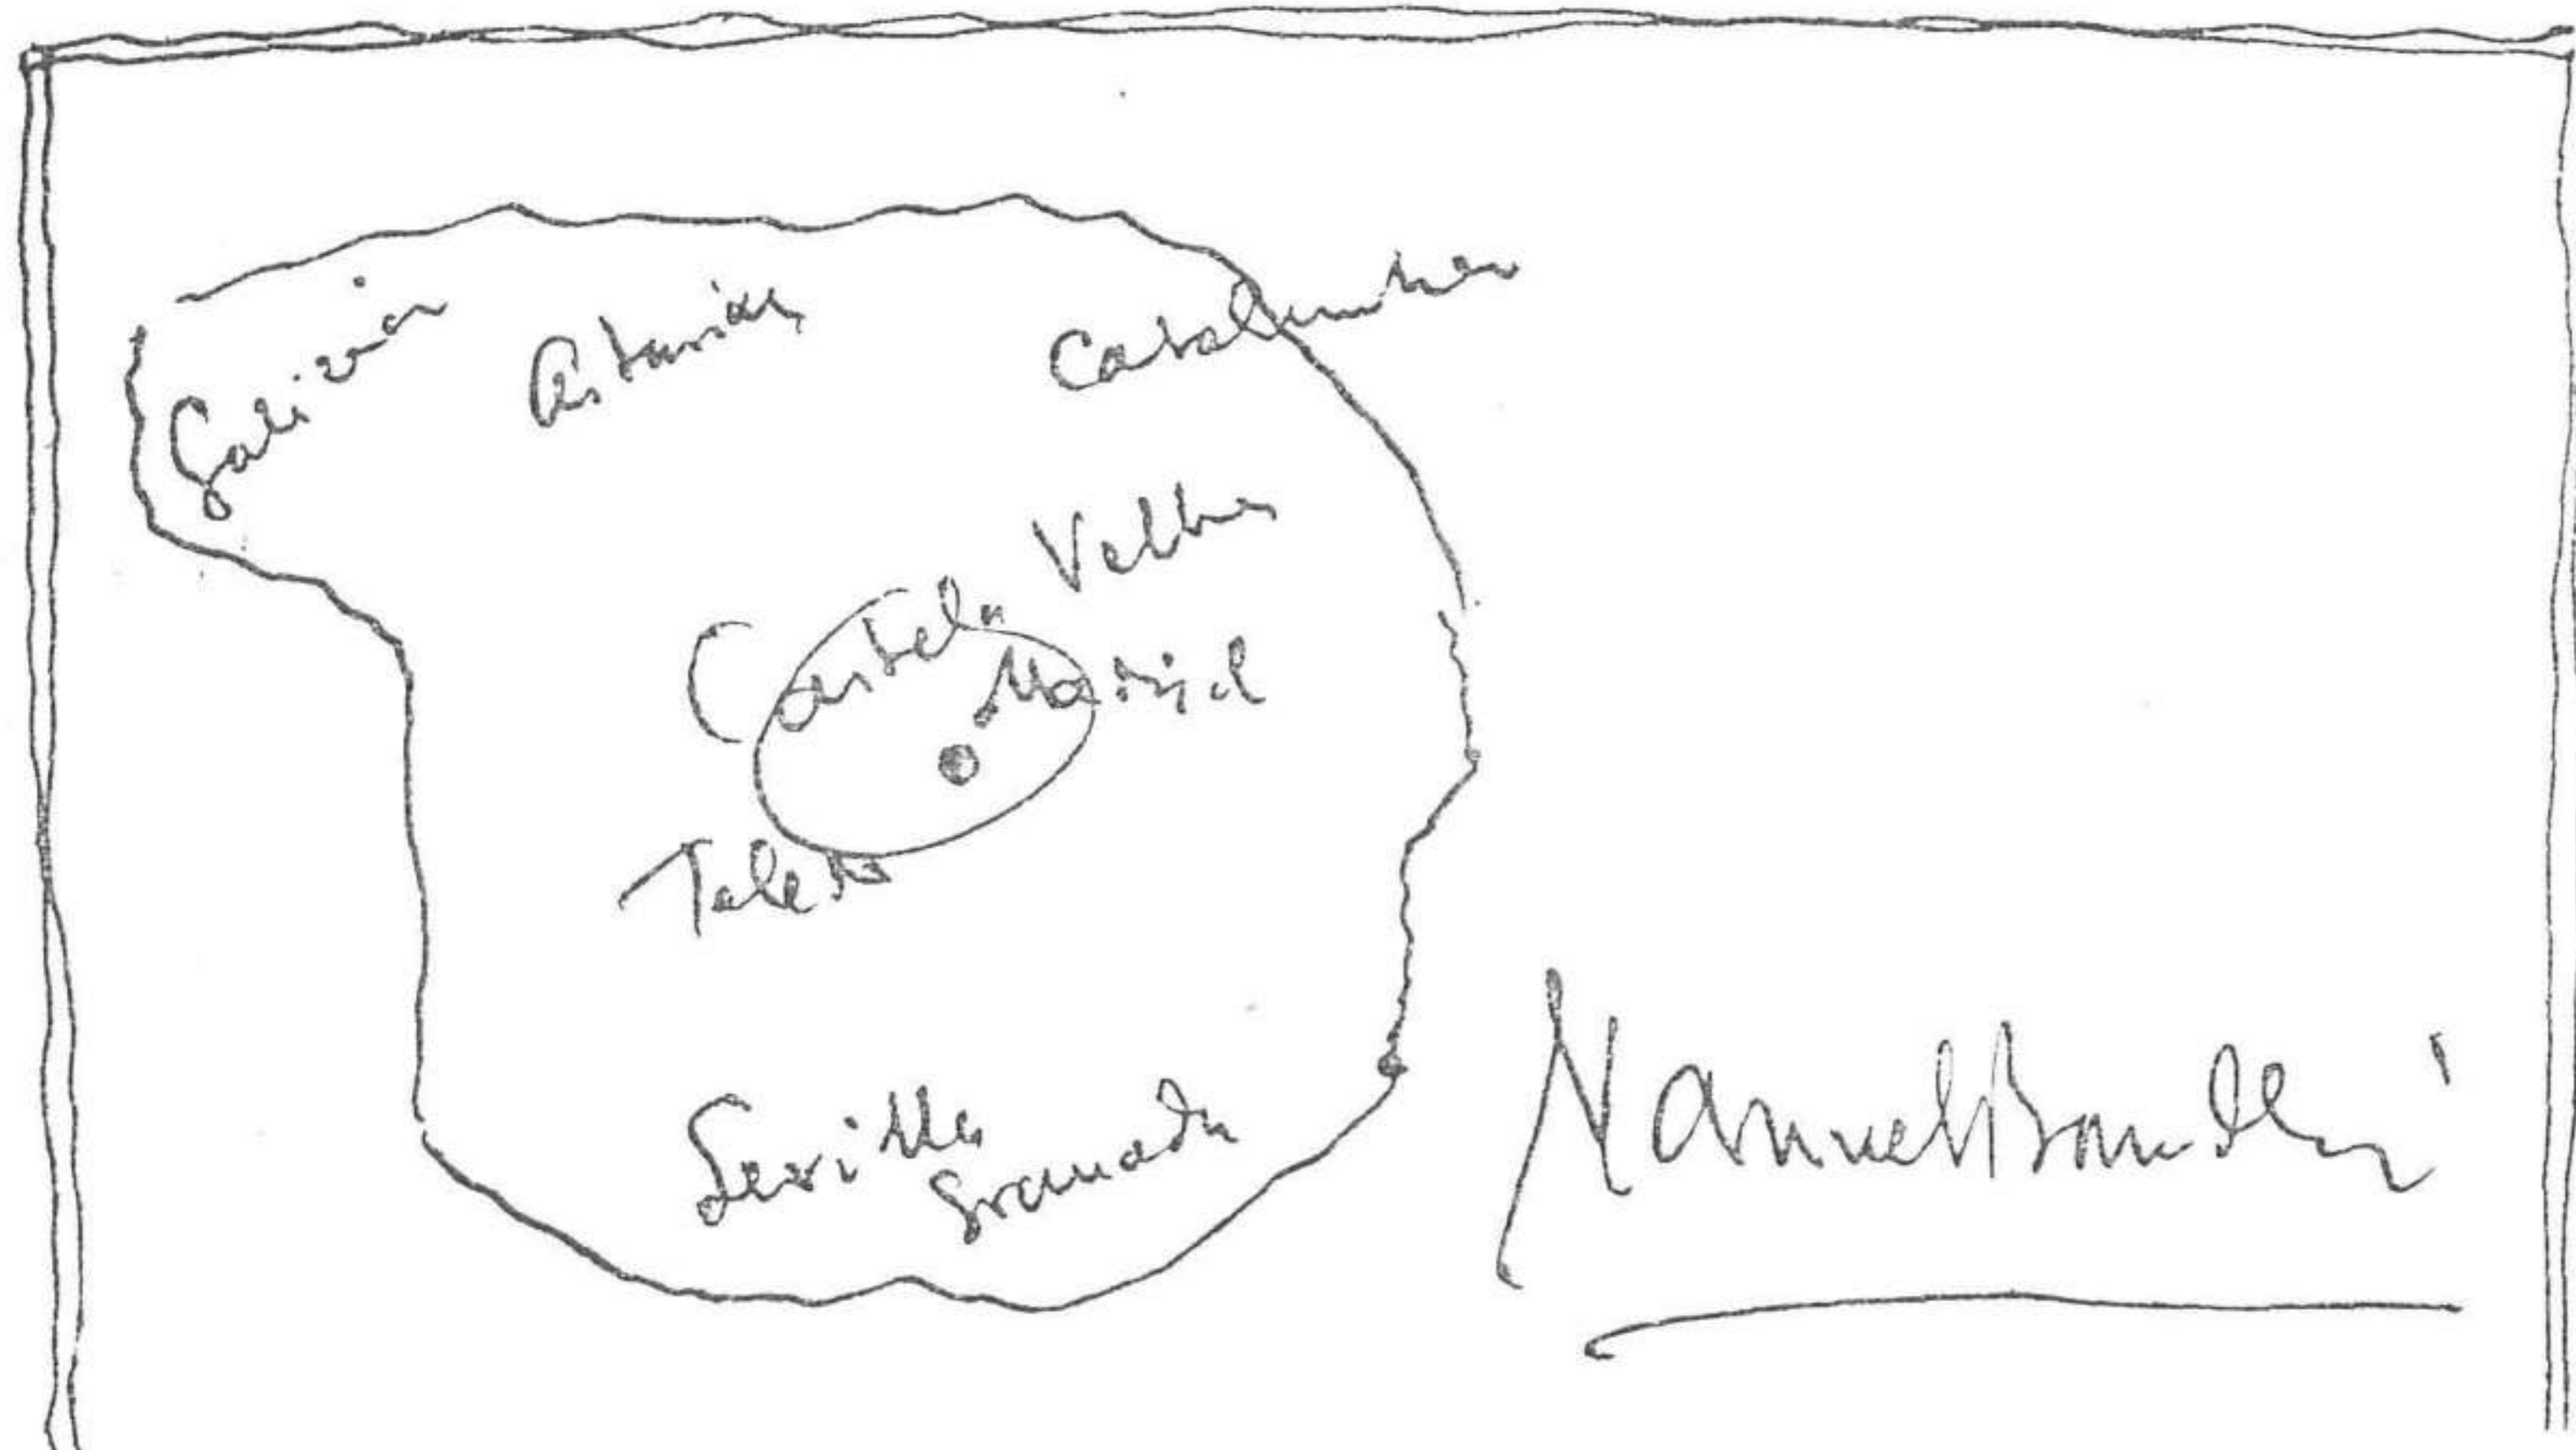 Galiza
Asturias
Catalunha
Castela Velha
Madrid
Toledo
Sevilla
Granada
Manuel Bandeira